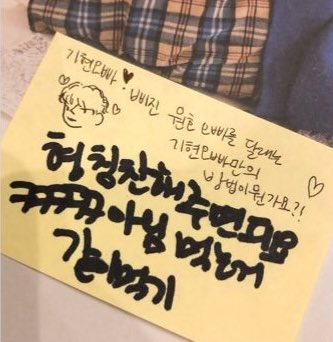 기현오빠♥ 삐진 원호 오빠를 달래는
기현오빠만의
방법이뭔가요?!
형 칭찬해주면되요
ㅋㅋㅋㅋ아님 먹는거
같이먹기